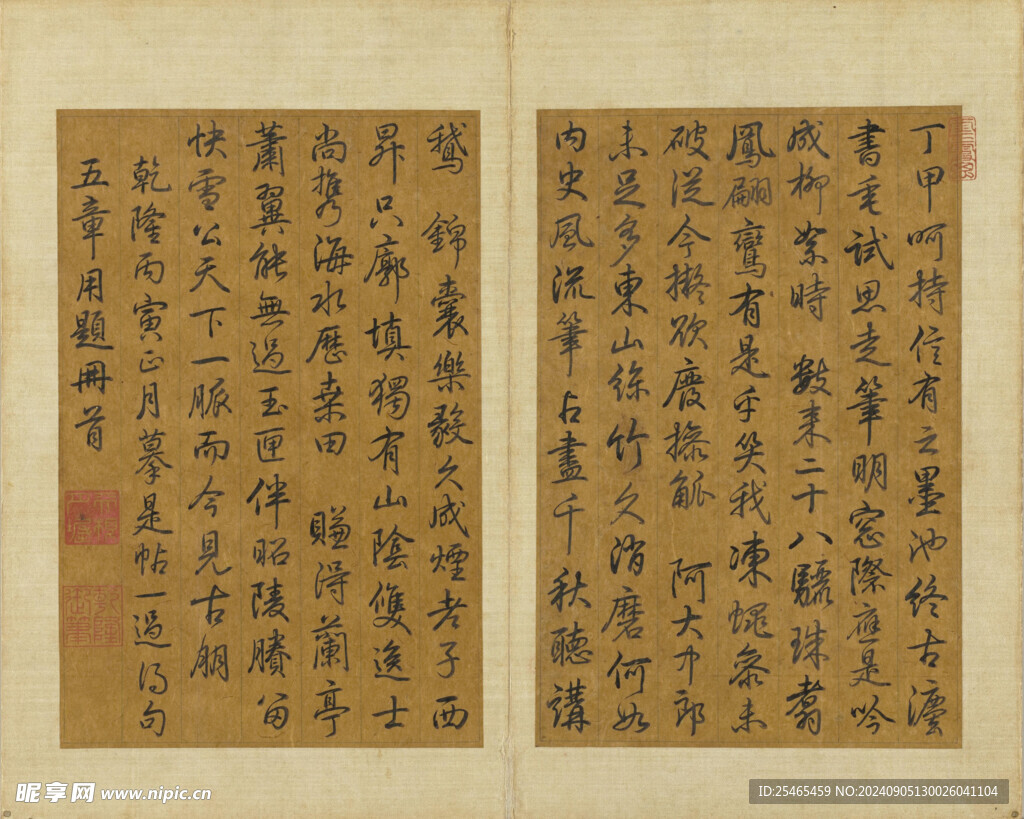 丁甲呵持信有之墨池終古灋
書垂試思走筆明窗際應是吟
成柳絮時 數來二十八驪珠翥
鳳翩鸞有是乎笑我凍蠅參未
破從今擬欲廢操觚 阿大中郎
未足多東山絲竹久消磨何如
內史風流筆占盡千秋聽講
鵝 錦囊樂毅久成煙老子西
昇只廓填獨有山陰雙逸士
尚攜海水歷桑田 賺得蘭亭
蕭翼能無過玉匣伴昭陵賸留
快雪公天下一脈而今見古朋
乾隆丙寅正月摹是帖一過得句
五章用題冊首
昵享网 www.nipic.cn
ID:25465459 NO:20240905130026041104